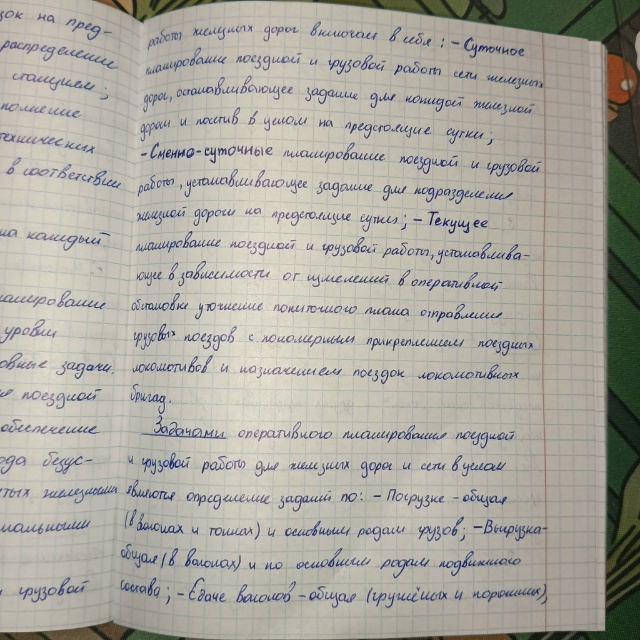 зок на пред-
распределение
станциям;
полнение
технических
в соответствии
на каждый
планирование
уровни
овные задачи.
поездной
обеспечение
ода безус-
тых железными
мальными
грузовой
работы железных дорог включает в себя: - Суточное
планирование поездной и грузовой работы сети железных
дорог, останавливающее задание для каждой железной
дороги и постив в целом на предстоящие сутки;
- Сменно-суточные планирование поездной и грузовой
работы, устанавливающее задание для подразделения
железной дороги на предстоящие сутки; - Текущее
планирование поездной и грузовой работы, устанавлива-
ющее в зависимости от изменений в оперативной
обстановке уточнение пониточного плана отправления
грузовых поездов с пономерным прикреплением поездных
локомотивов и назначением поездок локомотивных
бригад.
Задачами оперативного планирования поездной
и грузовой работы для железных дорог и сети в целом
являются определение заданий по: - Погрузке - общая
(в вагонах и тоннах) и основным родам грузов; - Выгрузка -
общая (в вагонах) и по основным родам подвижного
состава; - Сдаче вагонов - общая (гружёных и порожних),